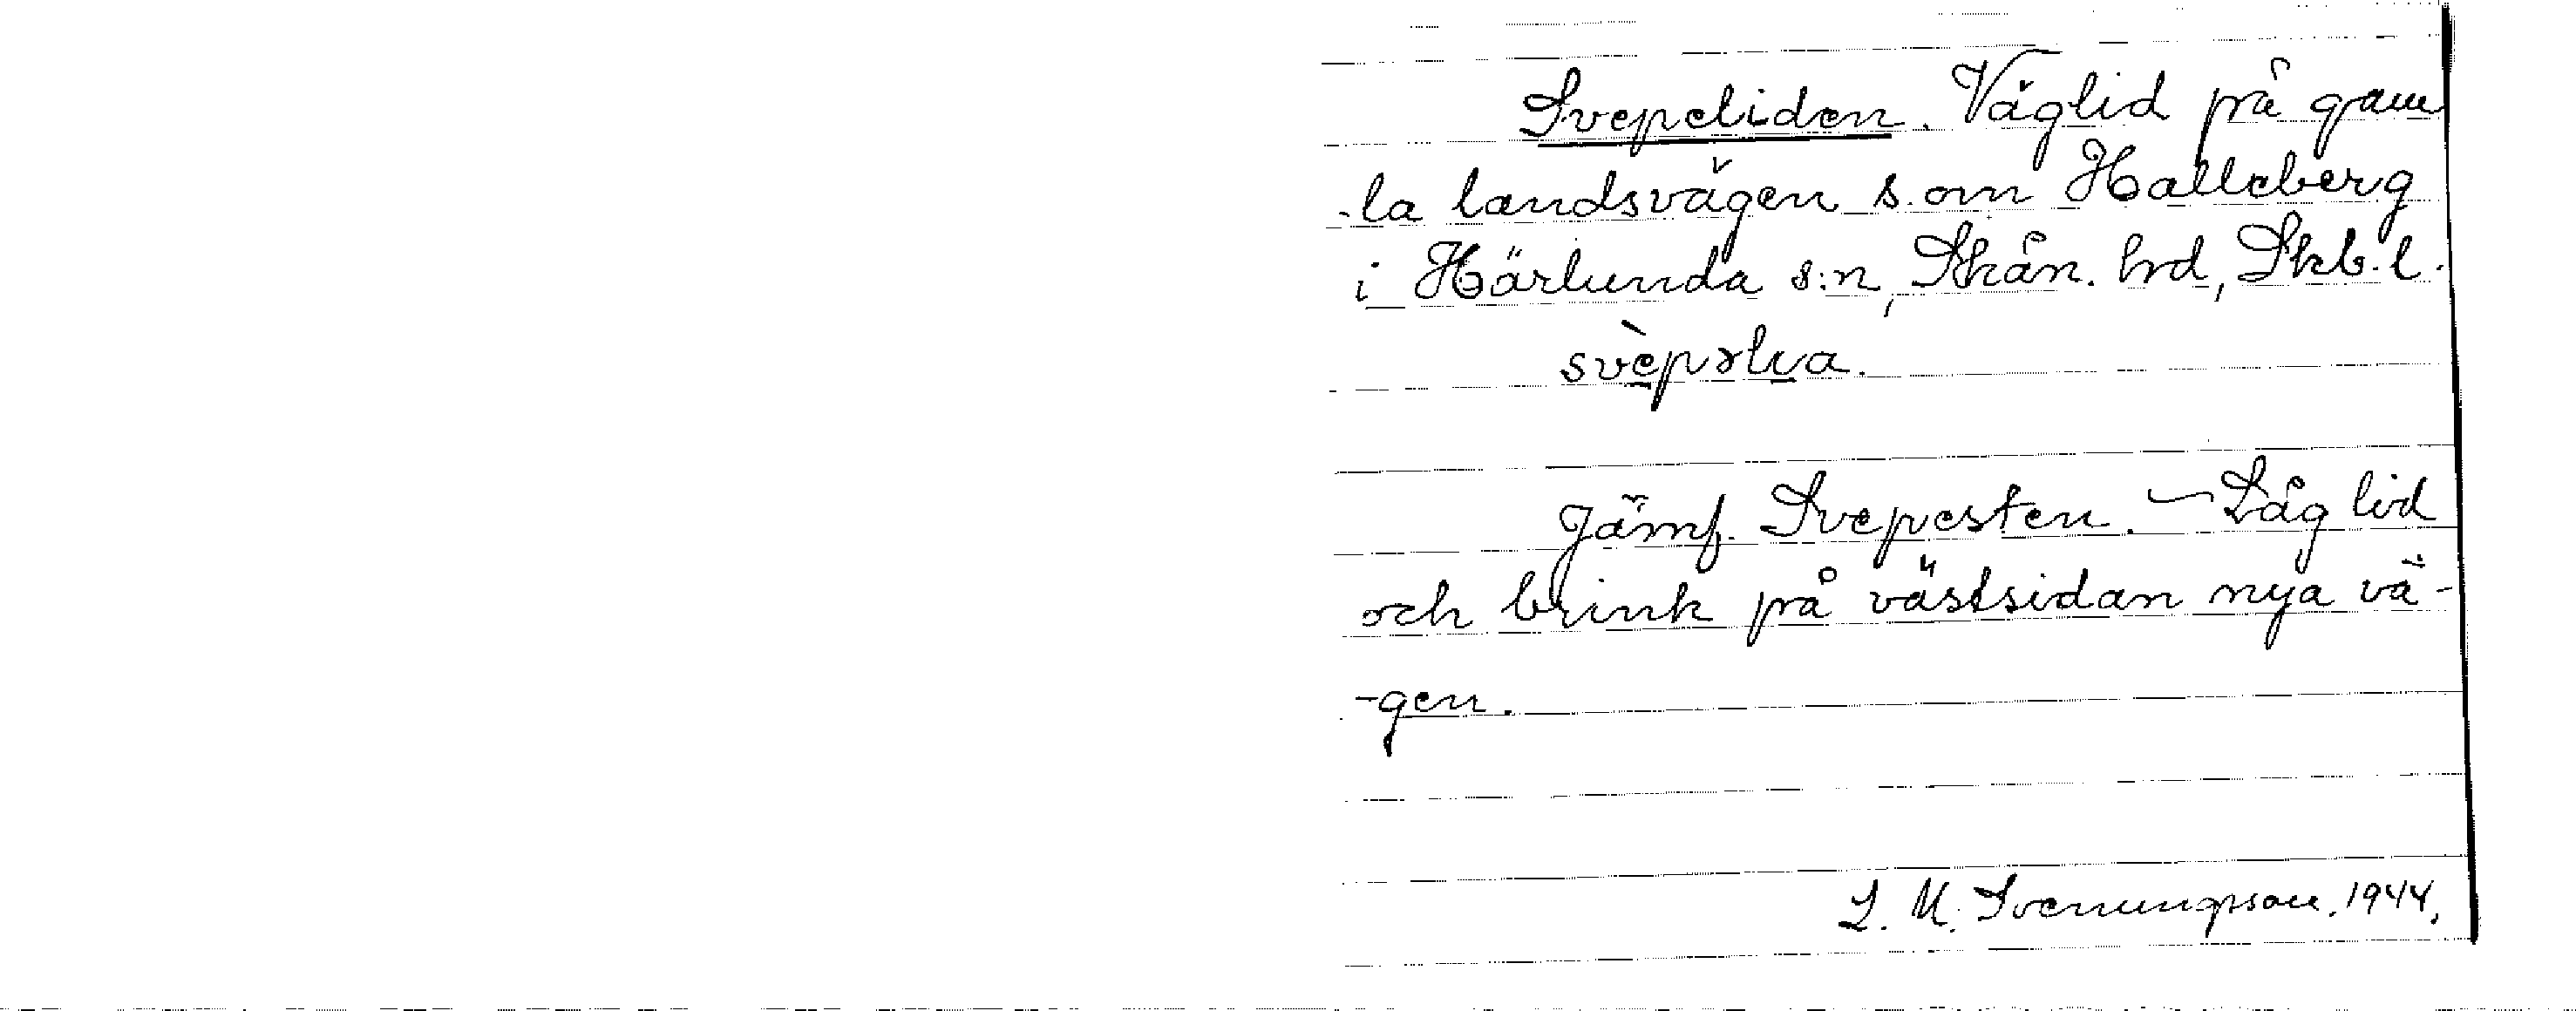 Svepeliden. Väglid på gam
-la landsvägen s. om Halleberg
i Härlunda s:n, Skån. hrd, Skb. l.
jämf. Svepesten. – Låg lid
och brink på västsidan nya vä-
-gen.
L. M. Svenungsson. 1944.